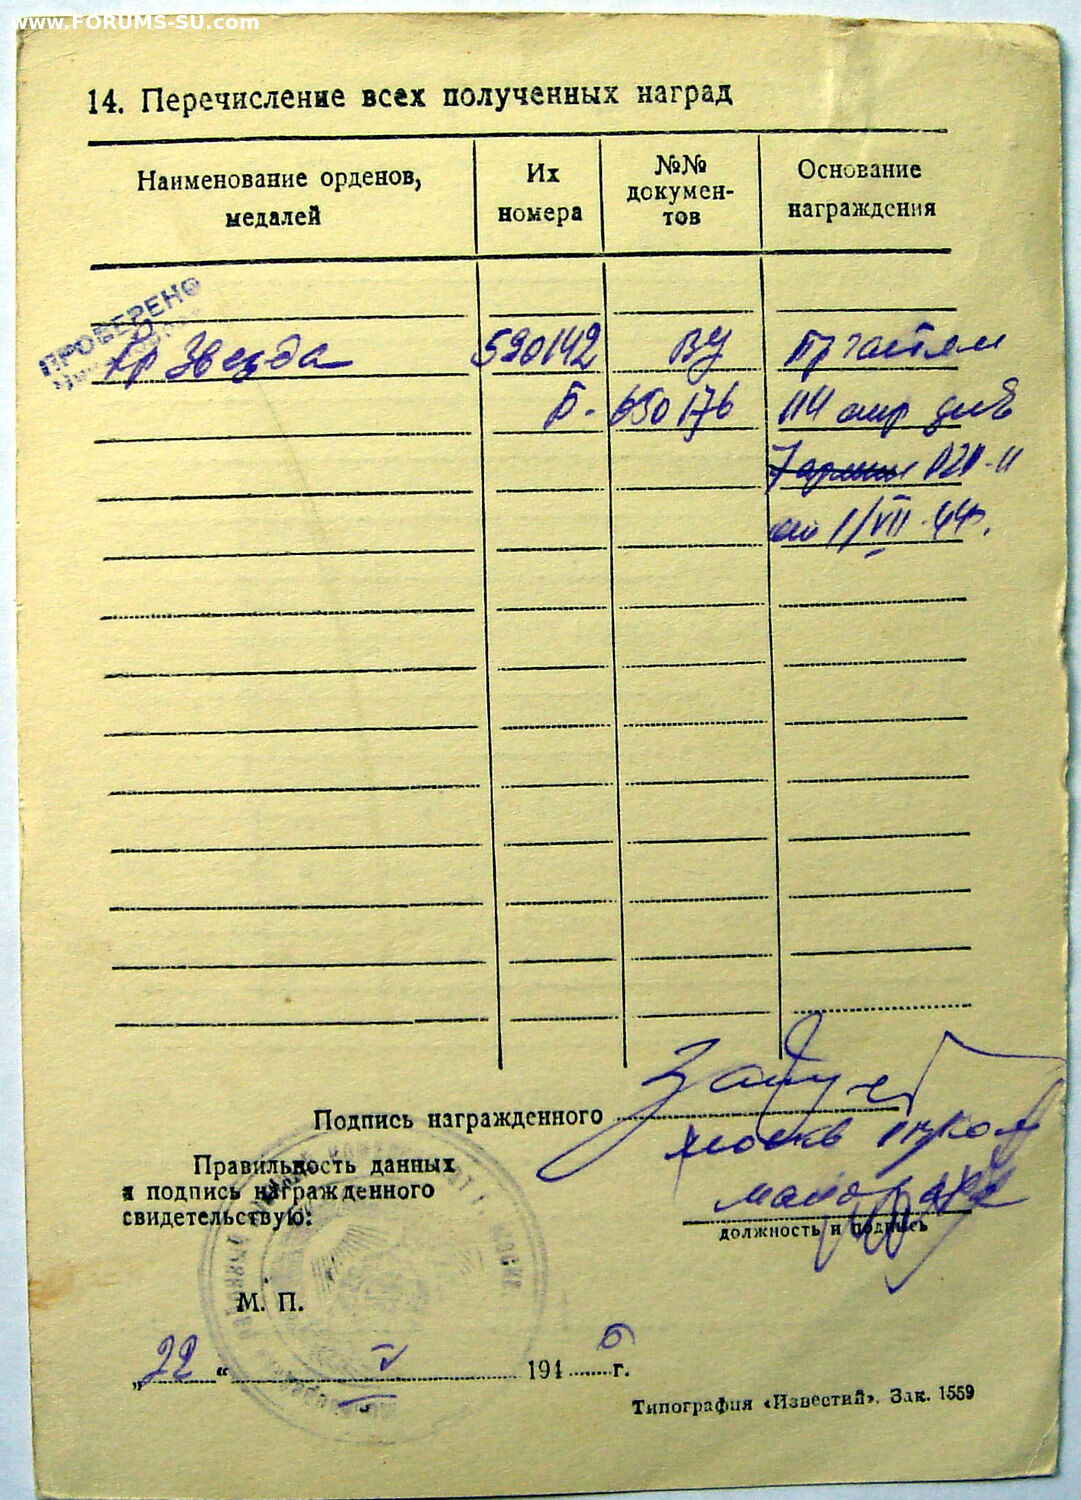 www.FORUMS-SU.com
14. Перечисление всех полученных наград
Наименование орденов, медалей
Их номера
№№ докумен-тов
Основание награждения
ПРОВЕРЕНО
Кр Звезда 590142 ВУ Пр частям
Б- 650176 114 стр див
7 армии 020-н
от 1/VII-44г.
Подпись награжденного
Правильность данных
и подпись награжденного
свидетельствую:
майор
должность и подпись
М. П.
„22“ V 1946 г.
Типография «Известий». Зак. 1559